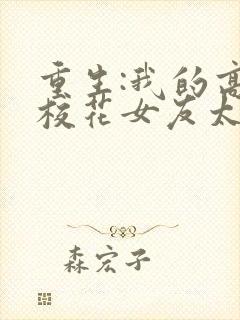 重生:我的高
校花女友太
森宏子